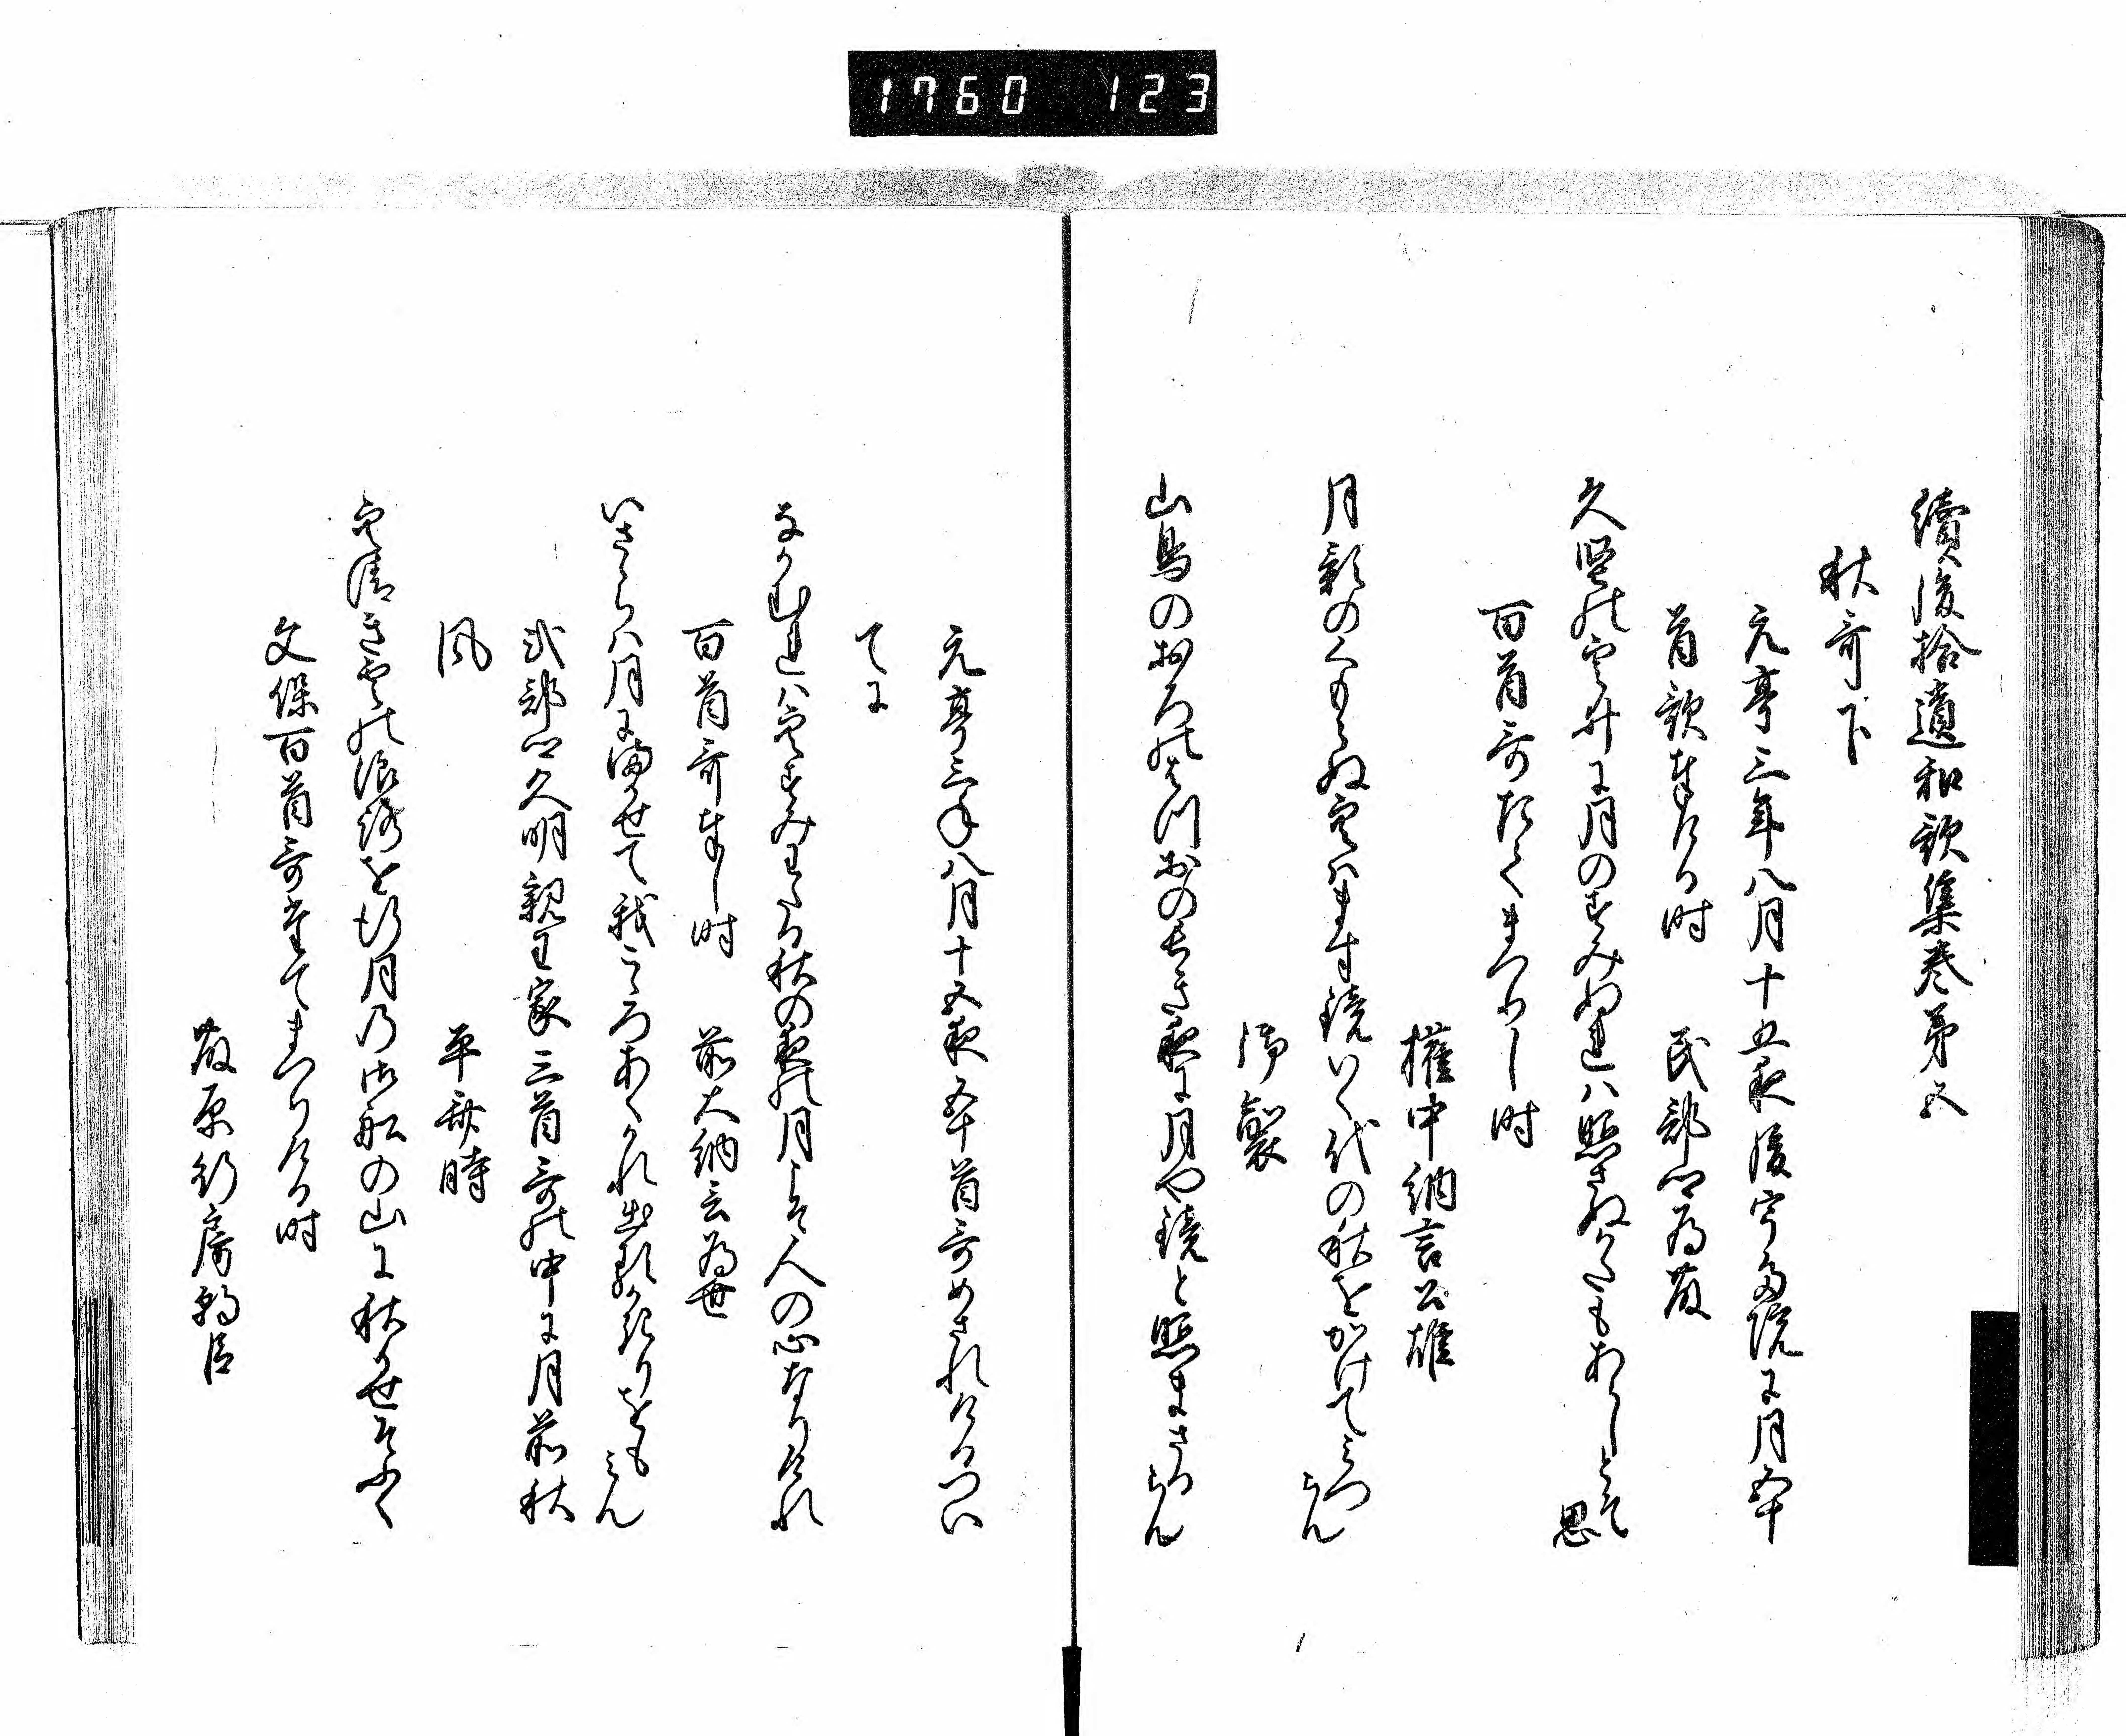 1760 123
續後拾遺和歌集巻第五
秋哥下
元亨三年八月十五夜後宇多院に月五十
首歌奉ける時　民部卿為藤
久堅の空に月のすみぬれは照さぬかたもあらしとそ思
百首哥たてまつりし時
権中納言公雄
月影のくもらぬ空はます鏡いく代の秋をかけてみつらん
御製
山鳥のおろのはつおの長き夜に月や鏡と照まさるらん
元亨三年八月十五夜五十首哥めされけるつい
てに
なかむれは空すみわたる秋の夜の月こそ人の心なりけれ
百首哥奉し時　前大納言為世
いさゝらは月にまかせて我こゝろあくかれ出るかきりをもみん
式部卿久明親王家三首哥の中に月前秋
風　平斉時
空清き雲の浪路を行月の御船の山に秋かせそふく
文保百首哥たてまつりける時
藤原行房朝臣